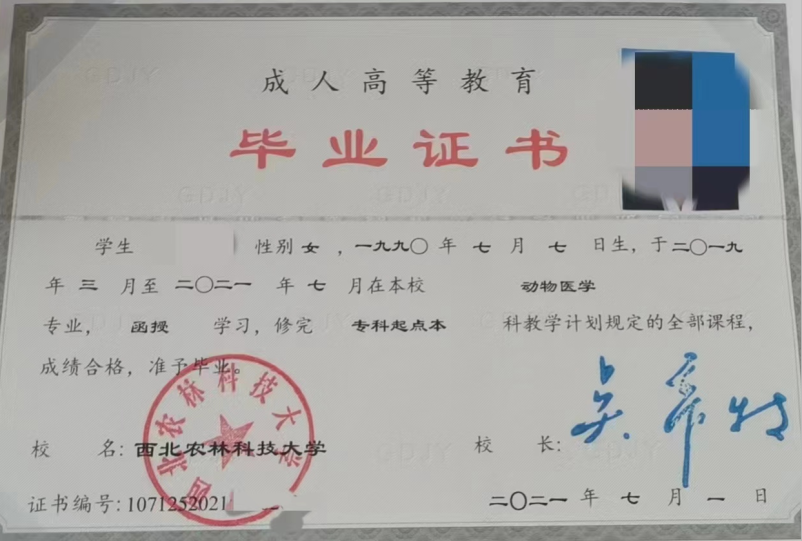 成人高等教育
毕业证书
学生 性别 女 ，一九九〇 年 七 月 七 日生，于二〇一九
年 三 月至 二〇二一 年 七 月在本校 动物医学
专业， 函授 学习，修完 专科起点本 科教学计划规定的全部课程，
成绩合格，准予毕业。
校 名：西北农林科技大学
西北农林科技大学
校 长：
证书编号：1071252021
二〇二一 年 七 月 一 日